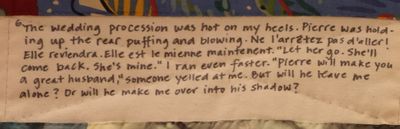 6 The wedding procession was hot on my heels. Pierre was hold-
ing up the rear puffing and blowing. Ne l'arrêtez pas d'aller!
Elle reviendra. Elle est le mienne maintenent. "Let her go. She'll
come back. She's mine." I ran even faster. "Pierre will make you
a great husband," someone yelled at me. But will he leave me
alone? Or will he make me over into his shadow?